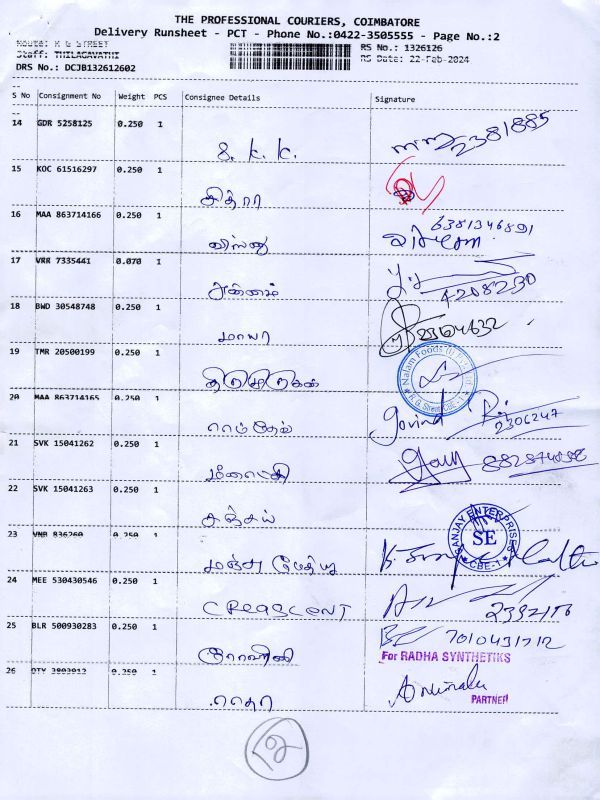 THE PROFESSIONAL COURIERS, COIMBATORE
Delivery Runsheet - PCT - Phone No.:0422-3505555 - Page No.:2
Route: R G STREET
Staff: THILAGAVATHI
RS No.: 1326126
DRS No.: DCJB132612602
RS Date: 22-Feb-2024
S No Consignment No Weight PCS Consignee Details Signature
14 GDR 5258125 0.250 1
S. K. K. 2381885
15 KOC 61516297 0.250 1
சித்ரா
16 MAA 863714166 0.250 1
விஸ்னு 6381346891
17 VRR 7335441 0.070 1
அன்னம் 4208230
18 BWD 30548748 0.250 1
மாயா 2304632
19 TMR 20500199 0.250 1
திருமுருகன் Nalam Foods (I) Pvt. Ltd. R.G. Street CBE-1
20 MAA 863714165 0.250 1
ராம்தேவ் Govind 2306247
21 SVK 15041262 0.250 1
மீனாட்சி
22 SVK 15041263 0.250 1
சஞ்சய்
SANJAY ENTERPRISES SE CBE-1
23 VNB 836260 0.250 1
மஞ்சு
24 MEE 530430546 0.250 1
CREASCENT
25 BLR 500930283 0.250 1
7010431712
For RADHA SYNTHETIKS
26 OTY 3803912 0.250 1
ராதா
PARTNER